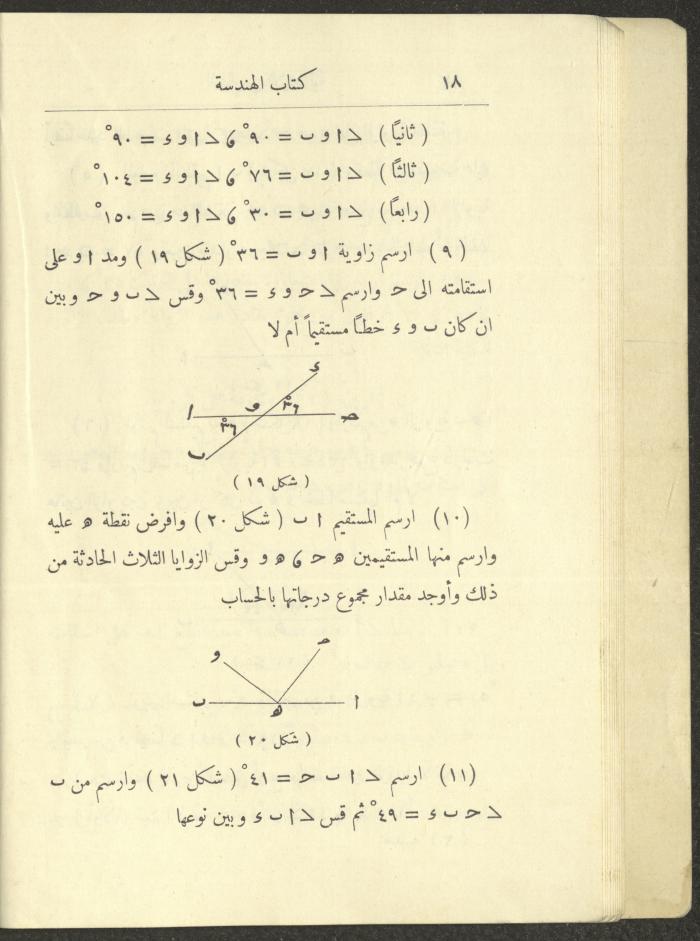 ١٨ كتاب الهندسة
( ثانياً ) ∠ ا و ب = ٩٠° ، ∠ ا و ء = ٩٠°
( ثالثاً ) ∠ ا و ب = ٧٦° ، ∠ ا و ء = ١٠٤°
( رابعاً ) ∠ ا و ب = ٣٠° ، ∠ ا و ء = ١٥٠°
( ٩ ) ارسم زاوية ا و ب = ٣٦° ( شكل ١٩ ) ومد ا و على
استقامته الى ح وارسم ∠ ح و ء = ٣٦° وقس ∠ ب و ح وبين
ان كان ب و ء خطاً مستقيماً أم لا
ء
ا و ٣٦° ح
٣٦°
ب
( شكل ١٩ )
(١٠) ارسم المستقيم ا ب ( شكل ٢٠ ) وافرض نقطة ه عليه
وارسم منها المستقيمين ه ح ، ه و وقس الزوايا الثلاث الحادثة من
ذلك وأوجد مقدار مجموع درجاتها بالحساب
و ح
ب ا
ه
( شكل ٢٠ )
(١١) ارسم ∠ ا ب ح = ٤١° ( شكل ٢١ ) وارسم من ب
∠ ح ب ء = ٤٩° ثم قس ∠ ا ب ء وبين نوعها